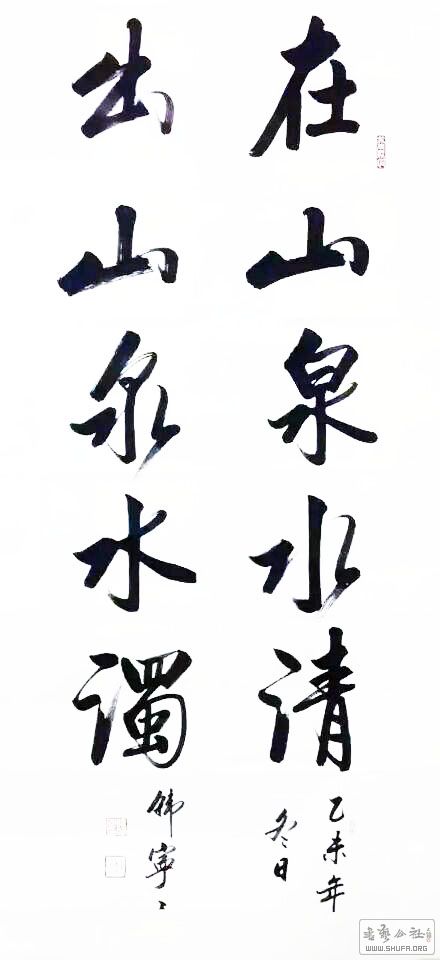 在山泉水清
乙未年
冬日
出山泉水濁
韩寧寧
書藝公社
WWW.SHUFA.ORG